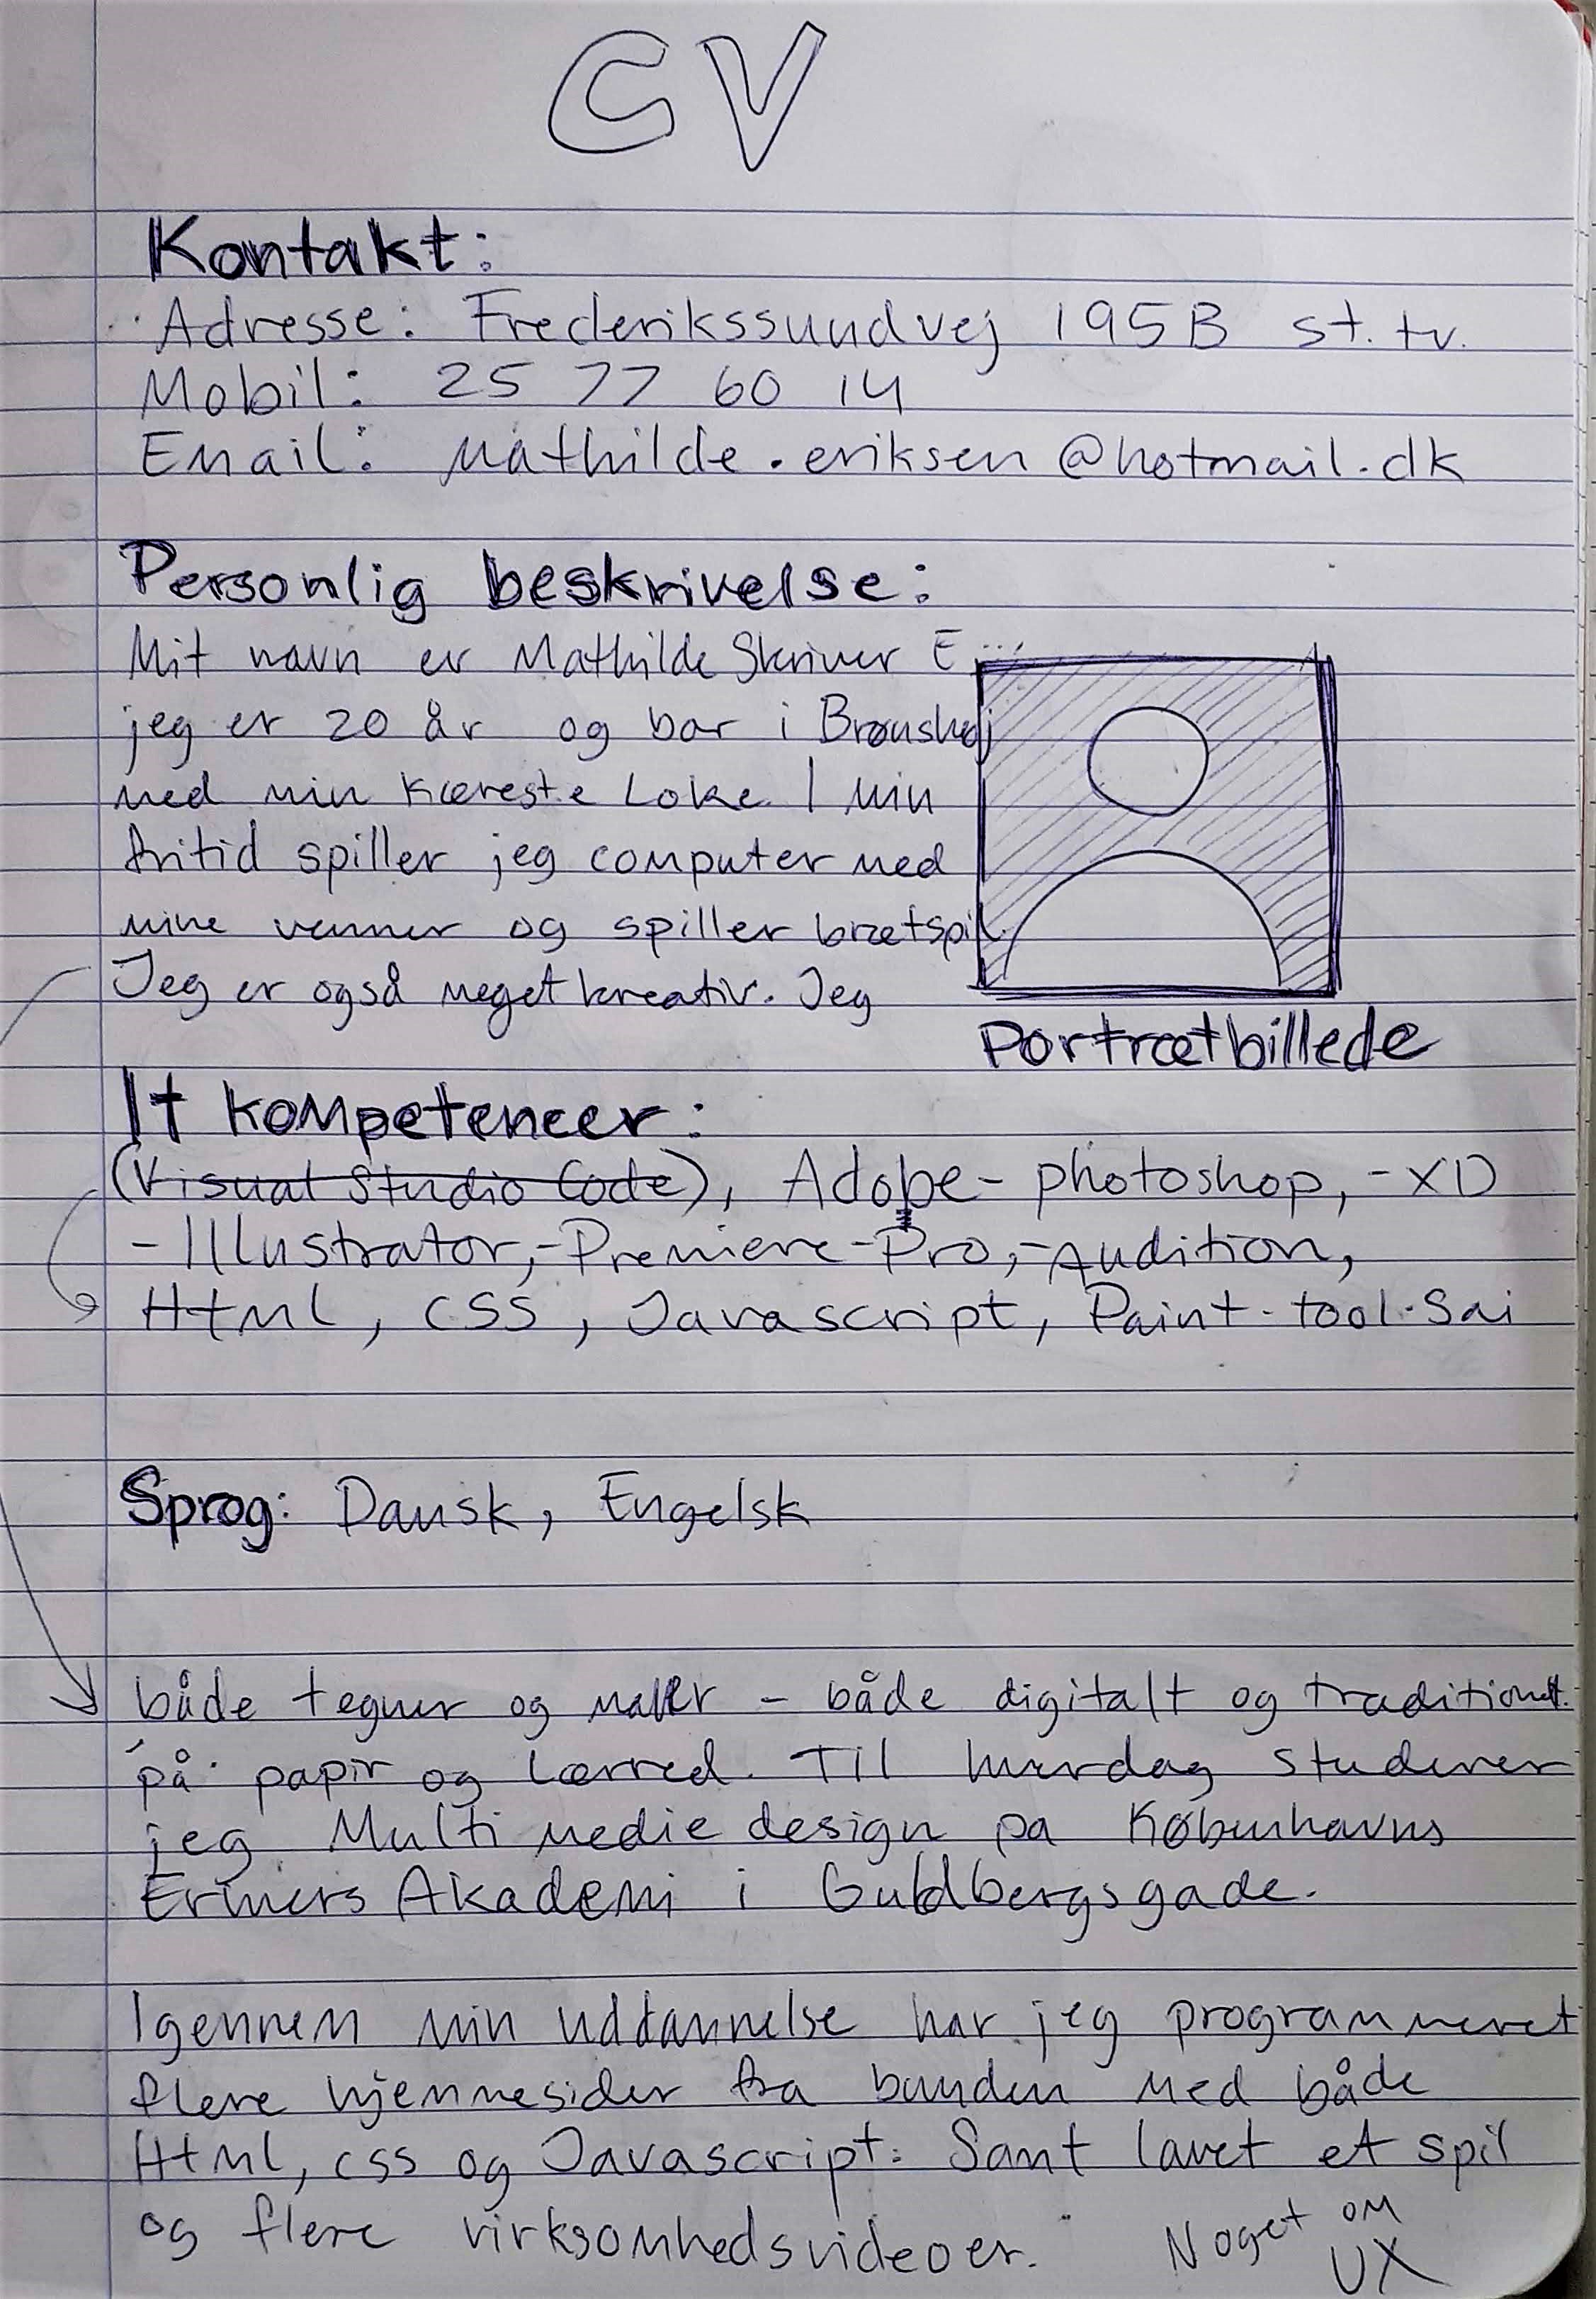 CV
Kontakt:
Adresse: Frederikssundvej 195B st. tv.
Mobil: 25 77 60 14
Email: Mathilde.eriksen@hotmail.dk
Personlig beskrivelse:
Mit navn er Mathilde Skriver E...
jeg er 20 år og bor i Brønshøj
med min kæreste Loke. I min
fritid spiller jeg computer med
mine venner og spiller brætspil.
Jeg er også meget kreativ. Jeg
Portrætbillede
It kompetencer:
(Visual Studio Code), Adobe- photoshop, -XD
-Illustrator,-Premiere-Pro,-Audition,
Html, CSS, Javascript, Paint-tool-Sai
Sprog: Dansk, Engelsk
både tegner og maler - både digitalt og traditionelt.
på papir og lærred. Til hverdag studerer
jeg Multimediedesign på Københavns
Ervhers Akademi i Guldbergsgade.
Igennem min uddannelse har jeg programmeret
flere hjemmesider fra bunden med både
Html, css og Javascript. Samt lavet et spil
og flere virksomhedsvideoer.
Noget om
UX